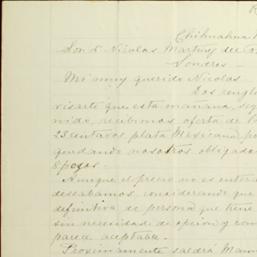 Chihuahua
Don Nicolas Martinez del
Londres.
Mi muy querido Nicolas
Dos
visarte que esta mañana,
nido, recibimos oferta de
23 centavos plata Mexicana
quedando nosotros obligado
épocas.
Aunque el precio no es
deseabamos, considerando que
definitiva de persona que tiene
sin necesidad de opcion y con
parece aceptable.
Proximamente saldrá